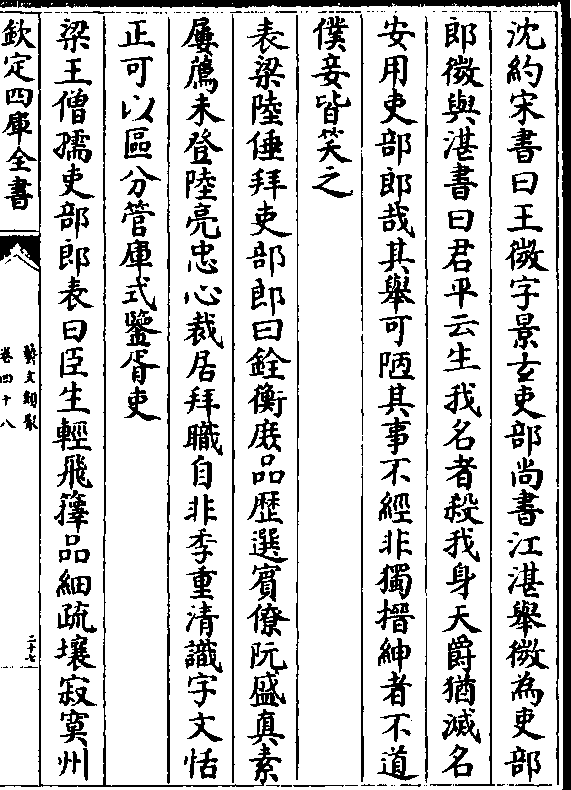 沈約宋書曰王微字景玄吏部尚書江湛舉微為吏部
郎微與湛書曰君平云生我名者殺我身天爵猶滅名
安用吏部郎哉其舉可陋其事不經非獨搢紳者不道
僕妾皆笑之
表梁陸倕拜吏部郎曰銓衡庶品歴選賓僚阮盛真素
屢薦未登陸亮忠心裁居拜職自非季重清識字文恬
正可以區分管庫式鑒胥吏
梁王僧孺吏部郎表曰臣生輕飛籜品細疏壤寂寞州
欽定四庫全書
藝文類聚
卷四十八
二十七